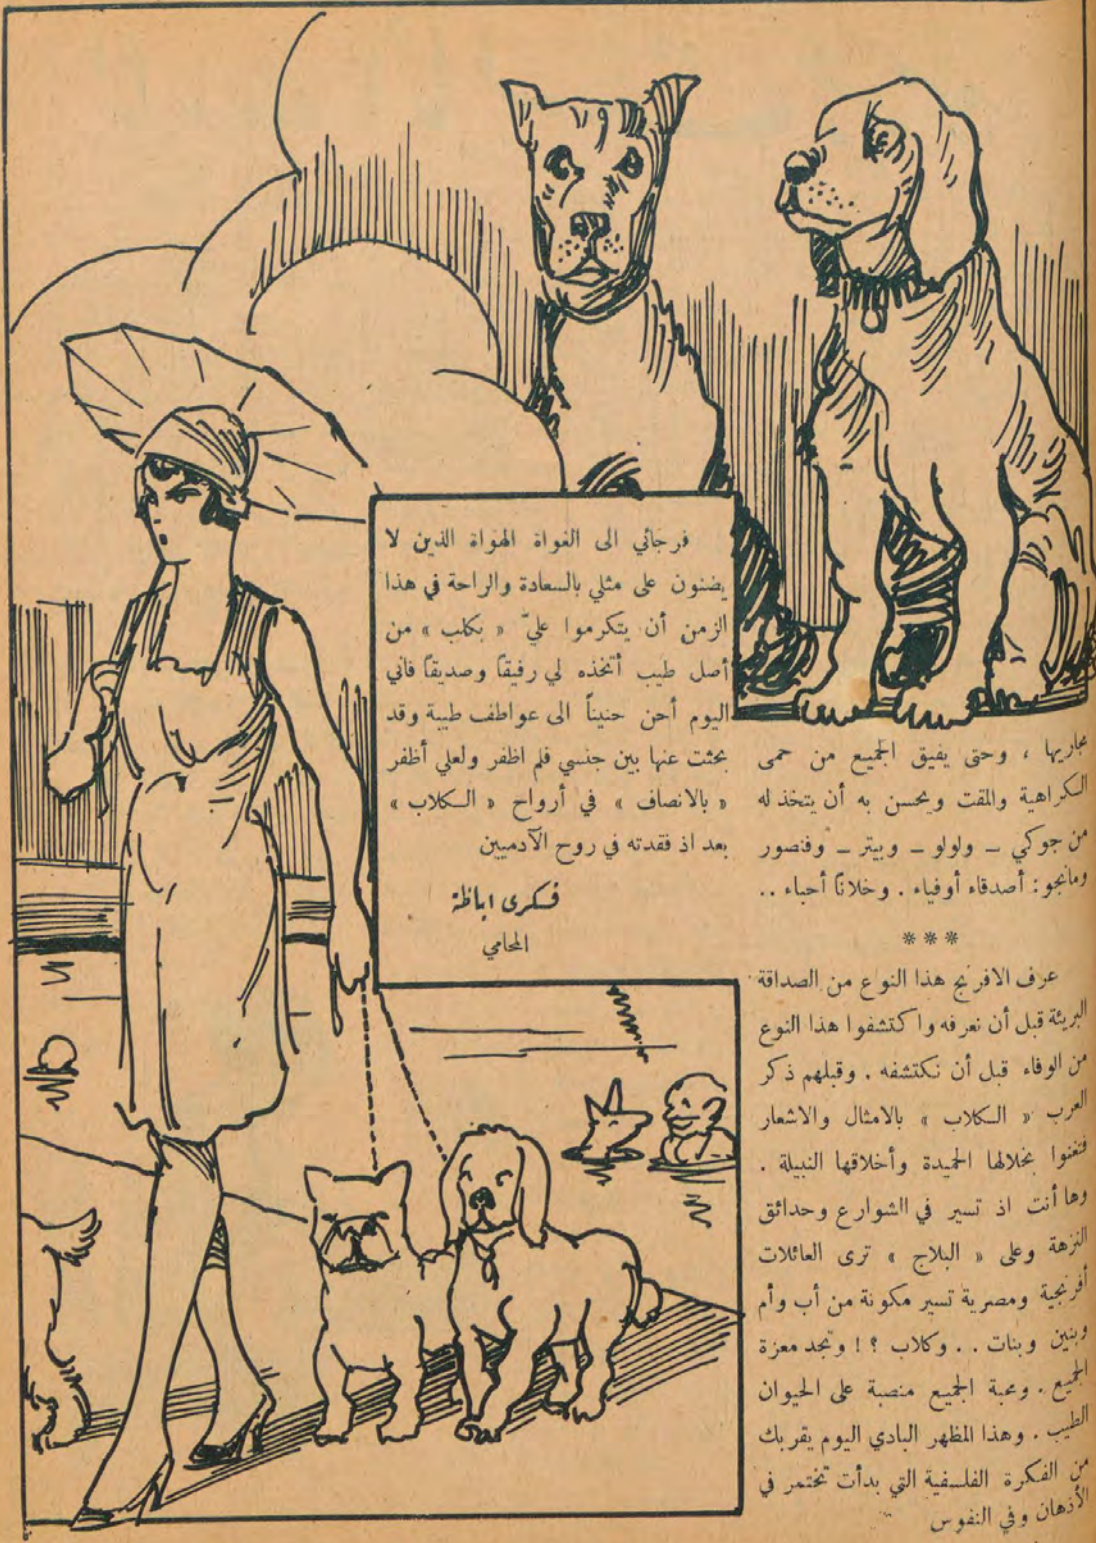 مجاريها ، وحتى يفيق الجميع من حمى
الكراهية والمقت ويحسن به أن يتخذ له
من جوكي ــ ولولو ــ وبيتر ــ وفنصور
ومانجو : أصدقاء أوفياء . وخلاناً أحباء ..
***
عرف الافرنج هذا النوع من الصداقة
البريئة قبل أن نعرفه واكتشفوا هذا النوع
من الوفاء قبل أن نكتشفه . وقبلهم ذكر
العرب « الكلاب » بالامثال والاشعار
فتغنوا بخلالها الحميدة وأخلاقها النبيلة .
وها أنت اذ تسير في الشوارع وحدائق
النزهة وعلى « البلاج » ترى العائلات
أفرنجية ومصرية تسير مكونة من أب وأم
وبنين وبنات . . وكلاب ؟ ! وتجد معزة
الجميع . ومحبة الجميع منصبة على الحيوان
الطيب . وهذا المظهر البادي اليوم يقربك
من الفكرة الفلسفية التي بدأت تختمر في
الأذهان وفي النفوس
فرجائي الى الغواة الهواة الذين لا
يضنون على مثلي بالسعادة والراحة في هذا
الزمن أن يتكرموا عليّ « بكلب » من
أصل طيب أتخذه لي رفيقاً وصديقاً فاني
اليوم أحن حنيناً الى عواطف طيبة وقد
بحثت عنها بين جنسي فلم اظفر ولعلي أظفر
« بالانصاف » في أرواح « الكلاب »
بعد اذ فقدته في روح الآدميين
فكرى اباظة
المحامي